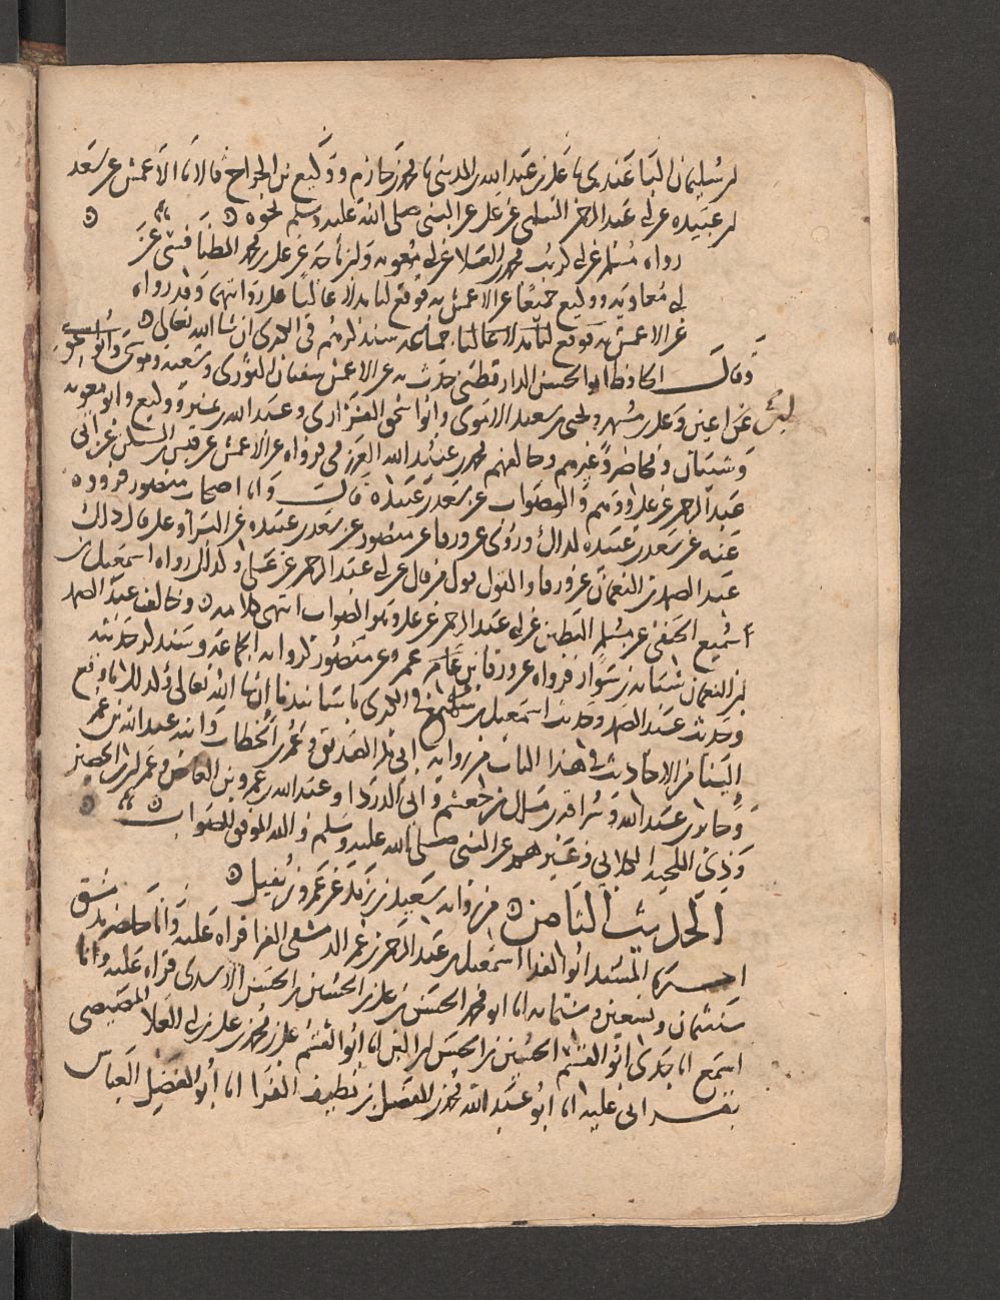 بن سليمان الباغندي نا علي بن عبد الله بن المديني نا محمد بن خازم ووكيع بن الجراح قالا نا الاعمش عن سعد
بن عبيده عن ابي عبد الرحمن السلمي عن علي عن النبي صلى الله عليه وسلم نحوه
رواه مسلم عن ابي كريب محمد بن العلا عن ابي معويه ولابن ماجه عن علي بن محمد الطنافسي عن
ابي معاويه ووكيع جميعا عن الاعمش به فوقع لنا بدلا عاليا على روايتهما وقد رواه
عن الاعمش به فوقع لنا بدلا عاليا جماعه سنذكرهم في الكبرى ان شا الله تعالى
وقال الحافظ ابو الحسن الدارقطني حدث به عن الاعمش سفيان الثوري وشعبه وابو اسحق
عن اعين وعلي بن مسهر ويحيى بن سعيد الاموي وابو اسحق الفزاري وعبد الله بن نمير ووكيع وابو معويه
وشيبان ومحاضر وغيرهم وخالفهم محمد بن عبيد الله العرزمي فرواه عن الاعمش عن قيس بن السكن عن ابي
عبد الرحمن عن علي ووهم والصواب عن سعد بن عبيده قال واما اصحاب منصور فرووه
عنه عن سعد بن عبيده كذلك وروى عن ورقا عن منصور عن سعد بن عبيده عن البرا وعلي قال ذلك
عبد الصمد بن النعمان عن ورقا والقول قول من قال عن ابي عبد الرحمن عن علي وكذلك رواه اسمعيل بن
سميع الحنفي عن مسلم البطين عن ابي عبد الرحمن عن علي وهو الصواب انتهى كلامه وخالف عبد الصمد
بن النعمان شبابه بن سوار فرواه عن ورقا عن منصور كروايه الجماعه وسنذكر حديثه
وحديث عبد الصمد وحديث اسمعيل بن سميع في الكبرى باسانيدنا ان شا الله تعالى وكذلك ما وقع
الينا من الاحاديث في هذا الباب من روايه ابي بكر الصديق وعمر بن الخطاب وابنه عبد الله بن عمر
وجابر بن عبد الله وسراقه بن مالك بن جعشم وابي الدردا وعبد الله بن عمرو بن العاص وعمران بن الحصين
وذي اللحيه الكلابي وغيرهم عن النبي صلى الله عليه وسلم والله الموفق للصواب
الحديث الثامن من روايه سعيد بن زيد بن عمرو بن نفيل
اخبرنا المسند ابو الفدا اسمعيل بن عبد الرحمن بن عمر الدمشقي الفرا قراه عليه وانا حاضر بدمشق
سنه ثمان وتسعين وستمايه انا ابو محمد الحسن بن علي بن الحسين بن الحسن الاسدي قراه عليه وانا
اسمع انا جدي ابو القسم الحسين بن الحسن بن البن انا ابو القسم علي بن محمد بن علي بن ابي العلا المصيصي
بقراتي عليه انا ابو عبد الله محمد بن الفضل بن نظيف الفرا انا ابو الفضل العباس